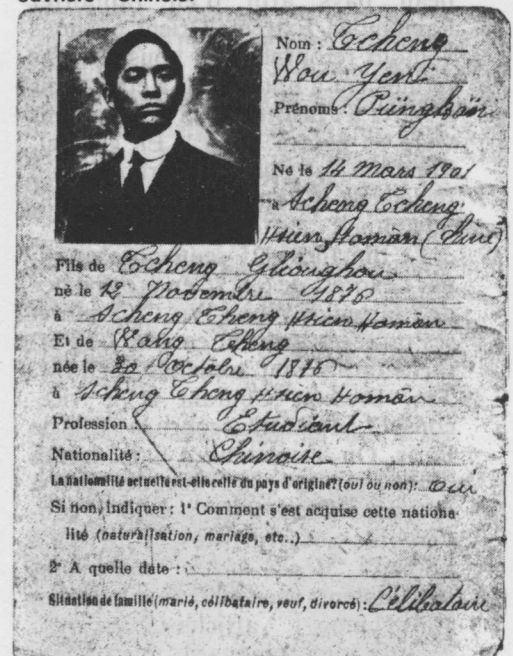 Ouvriers Chinois.
Nom : Tcheng
Wou Yeni
Prénoms : Püngkain
Né le 14 Mars 1901
à Scheng Tcheng
Hsien Homân (Chine)
Fils de Tcheng Glioughou
né le 12 Novembre 1876
à Scheng Tcheng Hsien Homân
Et de Wang Tcheng
née le 30 Octobre 1876
à Scheng Tcheng Hsien Homân
Profession : Etudiant
Nationalité : Chinoise
La nationalité actuelle est-elle celle du pays d'origine? (oui ou non): oui
Si non, indiquer : 1° Comment s'est acquise cette nationa-
lité (naturalisation, mariage, etc..)
2° A quelle date :
Situation de famille (marié, célibataire, veuf, divorcé) : Célibataire